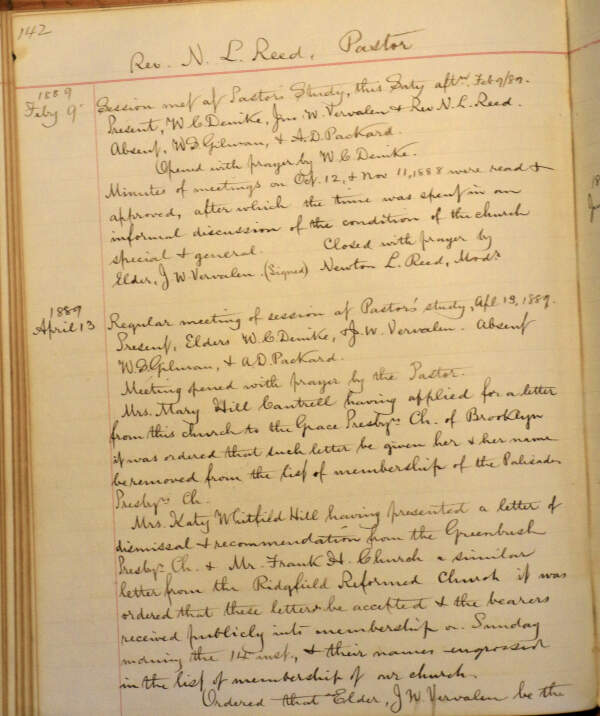 142
Rev. N. L. Reed, Pastor
1889
Feby 9
Session met at Pastor's Study, this Saty aftn. Feb 9/89.
Present, W. C. Demike, Jno. W. Vervalen & Rev N. L. Reed.
Absent, W. S. Gilman, & A. D. Packard.
Opened with prayer by W. C. Demike.
Minutes of meetings on Oct. 12, & Nov 11, 1888 were read &
approved, after which the time was spent in an
informal discussion of the condition of the church
special & general. Closed with prayer by
Elder, J W. Vervalen. (Signed) Newton L. Reed, Modr
1889
April 13
Regular meeting of session at Pastor's study, Apl 13, 1889.
Present, Elders W. C. Demike, & J. W. Vervalen. Absent
W. S. Gilman, & A. D. Packard.
Meeting opened with prayer by the Pastor.
Mrs. Mary Hill Cantrell having applied for a letter
from this church to the Grace Presbyn Ch. of Brooklyn
it was ordered that such letter be given her & her name
be removed from the list of membership of the Palisades
Presbyn Ch.
Mrs. Katy Whitfild Hill having presented a letter of
dismissal & recommendation from the Greenbush
Presbyn Ch. & Mr. Frank H. Church a similar
letter from the Ridgfield Reformed Church it was
ordered that these letters be accepted & the bearers
received publicly into membership on Sunday
morning the 14 inst., & their names engrossed
in the list of membership of our church.
Ordered that Elder, J. W. Vervalen be the